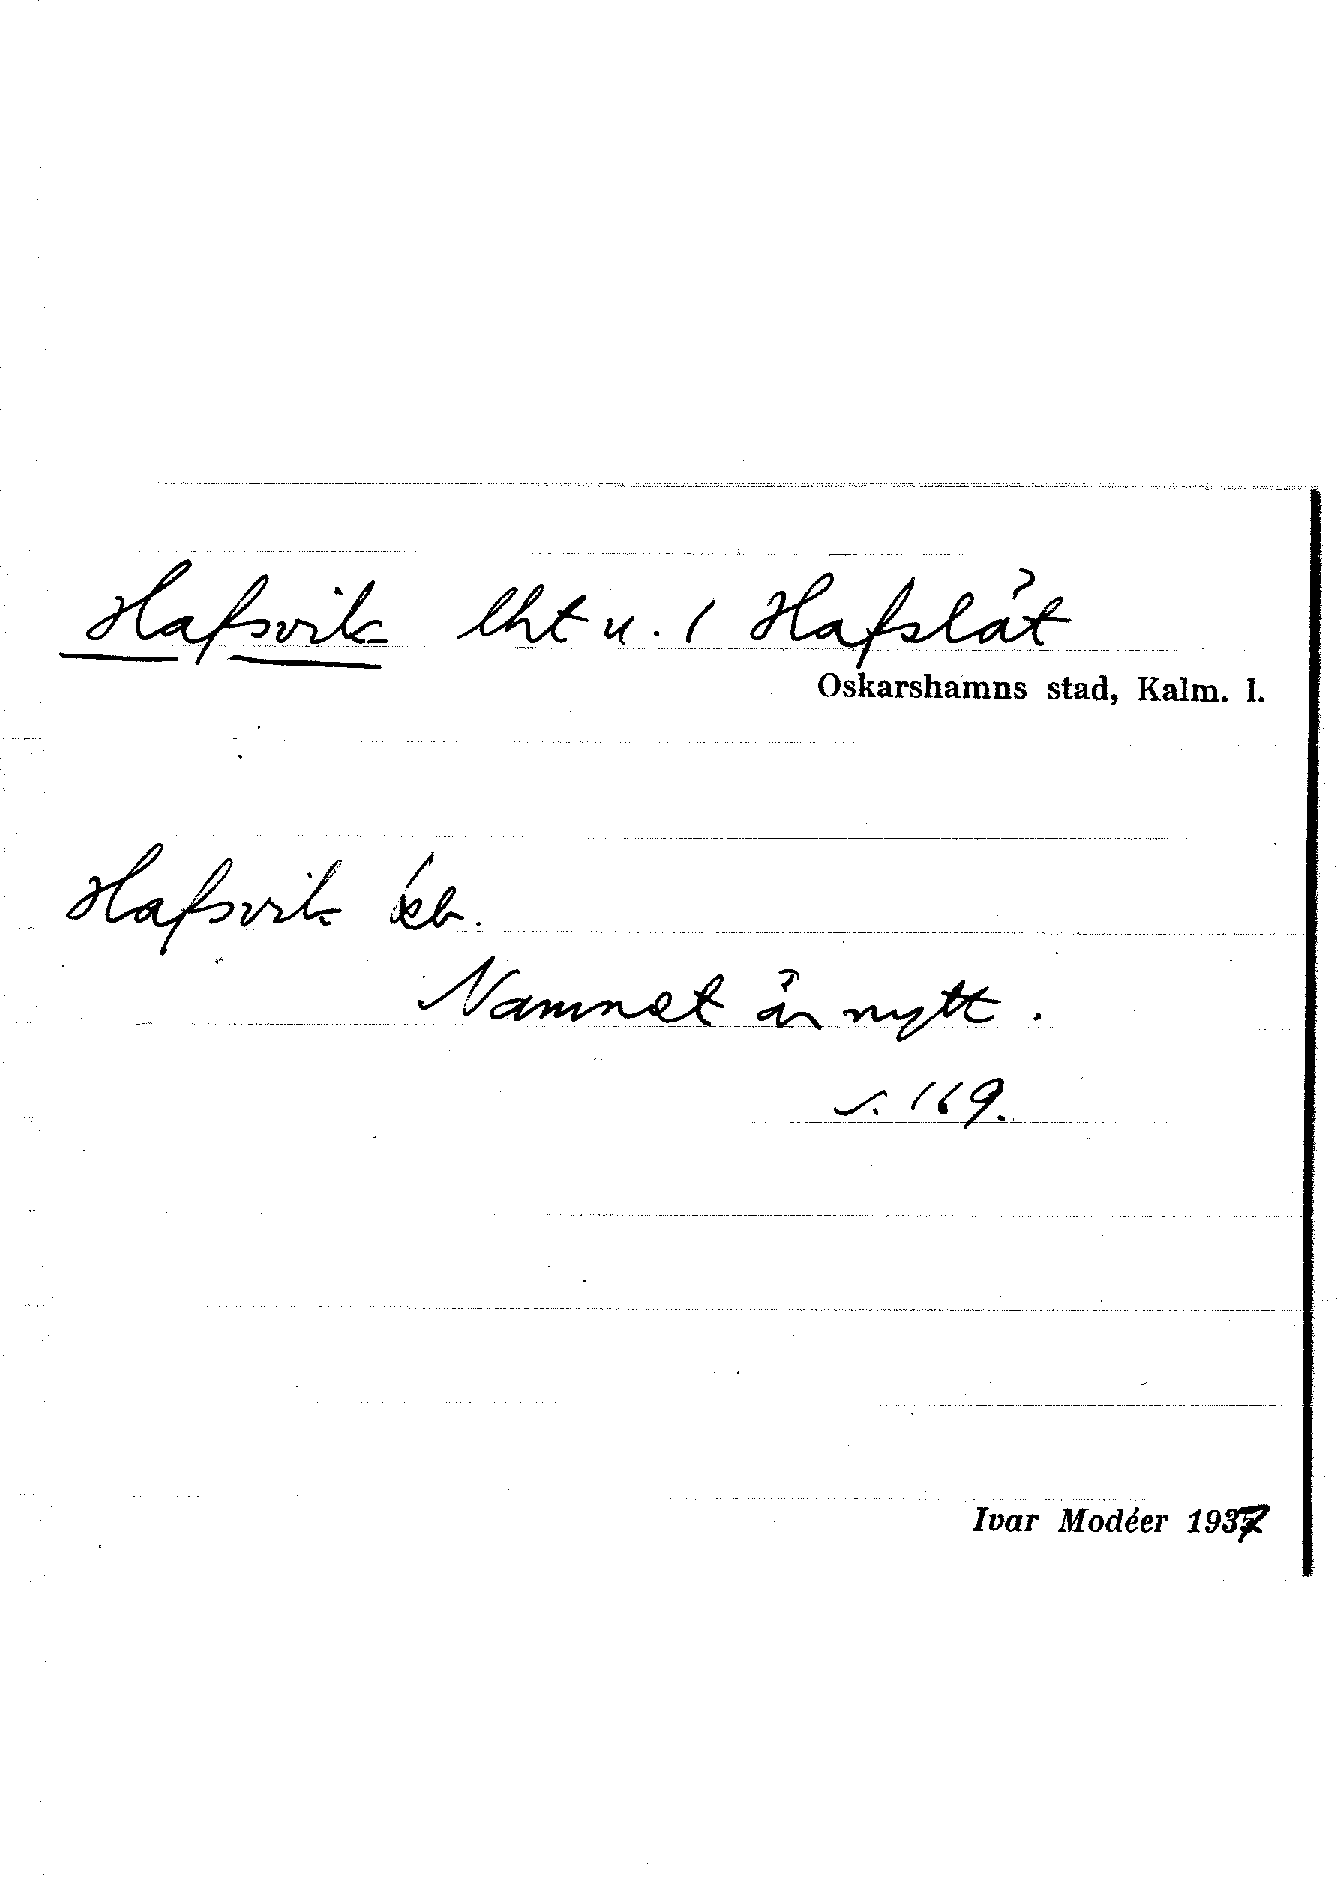 Hafsvik lht u. 1 Hafslåt
Oskarshamns stad, Kalm. l.
Hafsvik kb.
Namnet är nytt.
s. 169.
Ivar Modéer 1937